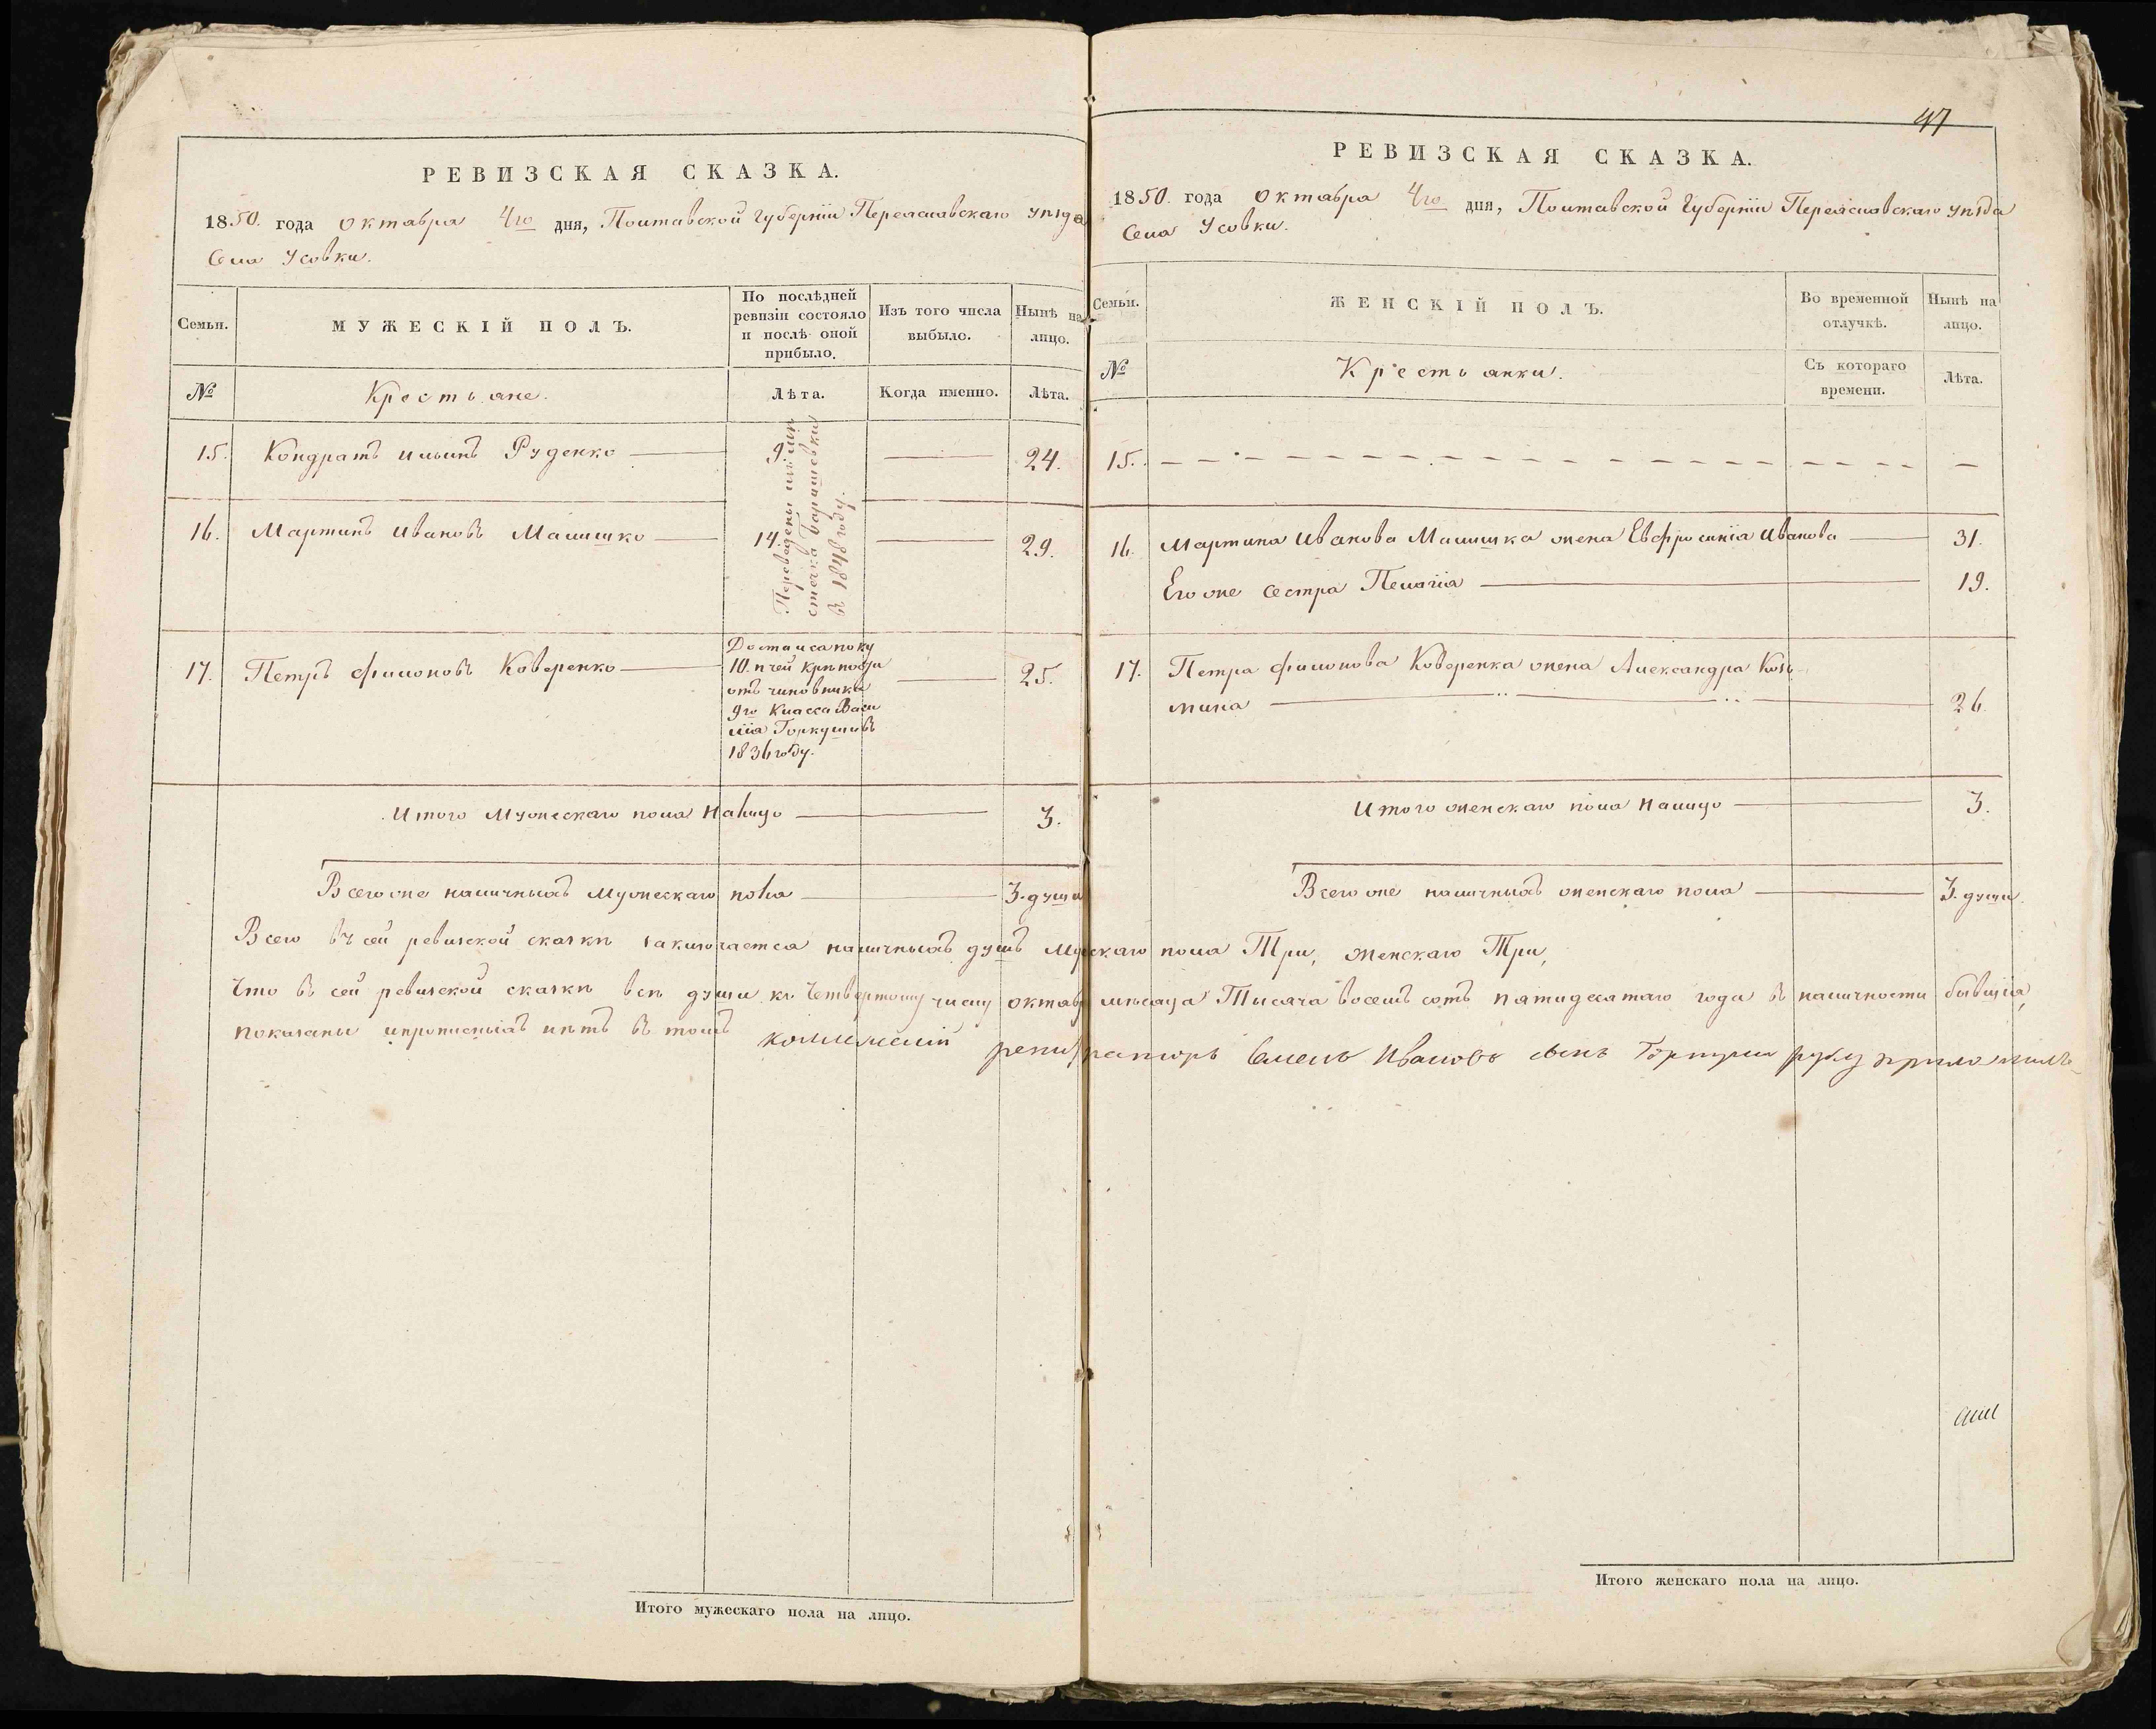 РЕВИЗСКАЯ СКАЗКА.
1850. года Октября 4го дня, Полтавской Губерніи Переяславскаго уѣзда
Села Усовки.
Семьи.
МУЖЕСКІЙ ПОЛЪ.
По послѣдней
ревизіи состояло
и послѣ оной
прибыло.
Изъ того числа
выбыло.
Нынѣ на
лицо.
№
Крестьяне.
Лѣта.
Когда именно.
Лѣта.
15. Кондратъ Ильинъ Руденко 9. 24.
16. Мартинъ Ивановъ Малишко 14. 29.
Переведены изъ мѣ
стечка Баришевки
въ 1848 году.
17. Петръ Филоновъ Коверенко 25.
Достался по ку
10. пчей крѣпости
отъ чиновника
9го класса Васи
лія Горкуши въ
1836 году.
Итого Мужескаго пола Налицо 3.
Всего же наличныхъ мужескаго пола 3. души
РЕВИЗСКАЯ СКАЗКА.
47
1850. года Октября 4го дня, Полтавской Губерніи Переяславскаго уѣзда
Села Усовки.
Семьи.
ЖЕНСКІЙ ПОЛЪ.
Во временной
отлучкѣ.
Нынѣ на
лицо.
№
Крестьянки.
Съ котораго
времени.
Лѣта.
15.
16. Мартина Иванова Малишка жена Евфросинія Иванова 31.
Его же сестра Пелагія 19.
17. Петра Филонова Коверенка жена Александра Козь
мина 26.
Итого женскаго пола Налицо 3.
Всего же наличныхъ женскаго пола 3. души.
Всего въ сей ревизской сказкѣ заключается наличныхъ душъ мужскаго пола Три, женскаго Три,
Что въ сей ревизской сказкѣ всѣ души къ Четвертому числу октяб мѣсяца Тысяча восемь сотъ пятидесятаго года въ наличности бывшія,
показаны и прописныхъ нѣтъ въ томъ коллежскій регистраторъ Семенъ Ивановъ сынъ руку приложилъ
Итого мужескаго пола на лицо.
Итого женскаго пола на лицо.